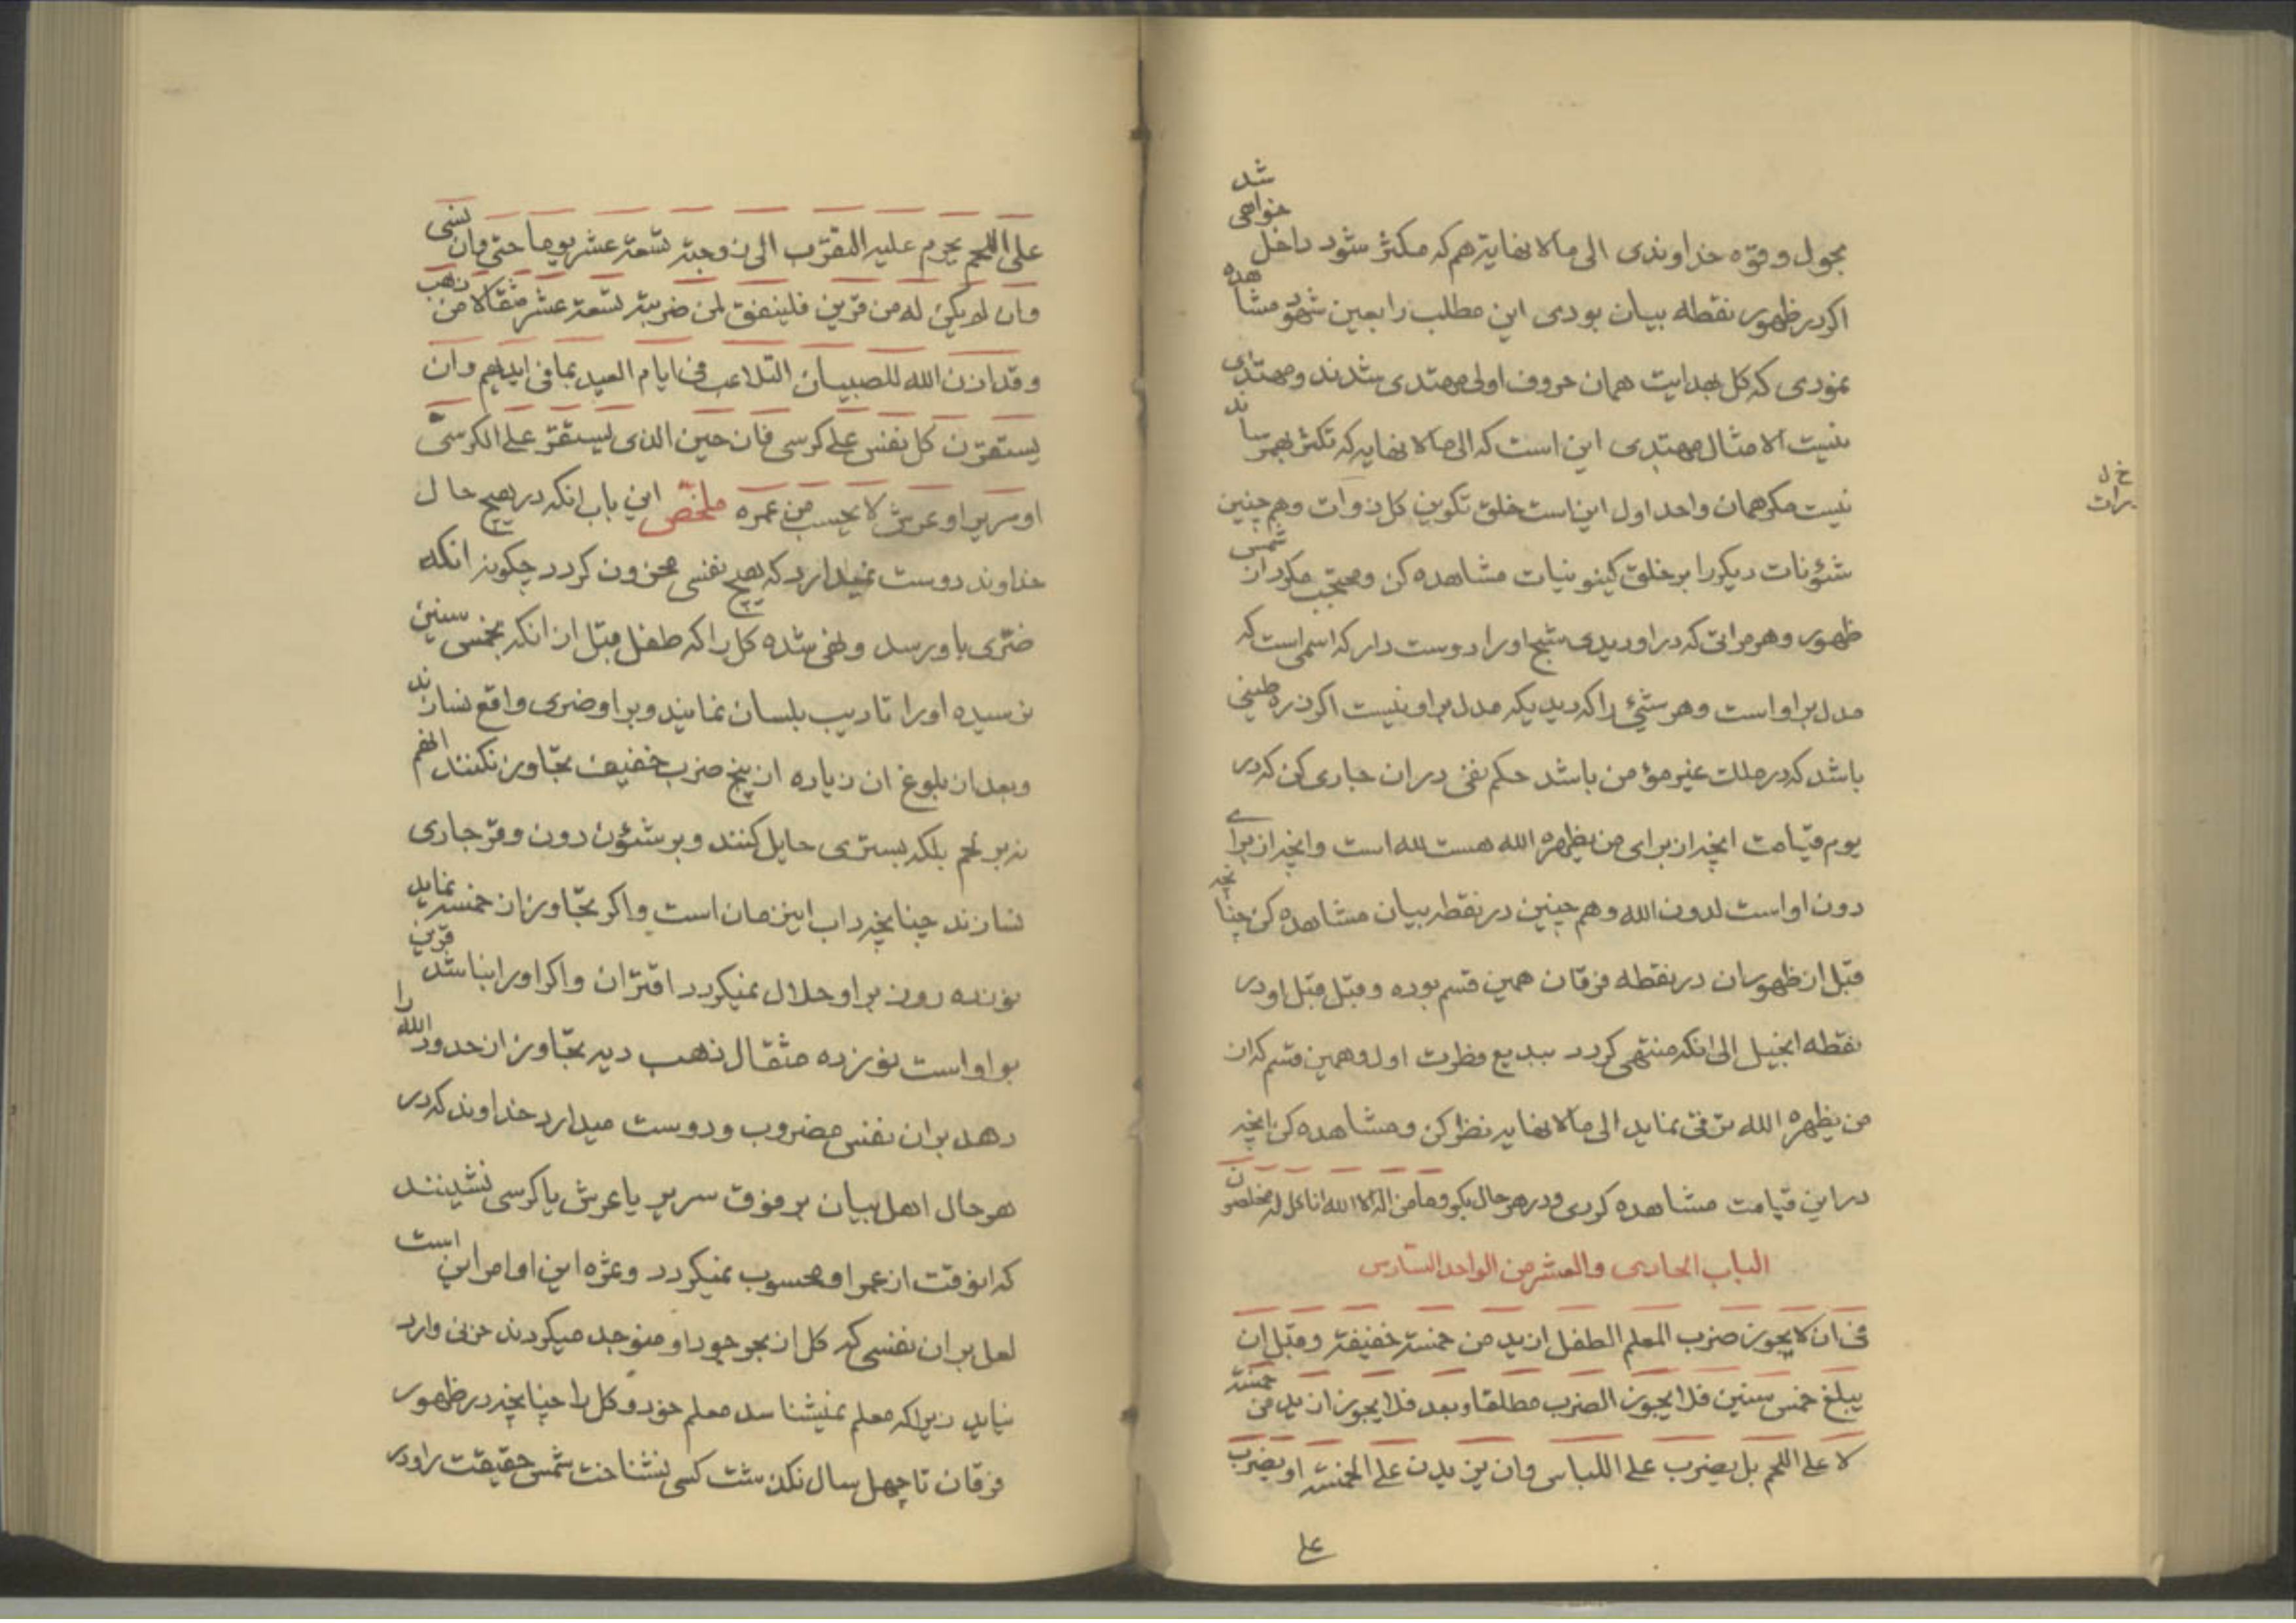 بحول و قوه خداوندی الی ما لا نهایة هم که مکثر شود داخل خواهی شد
اکر در ظهور نقطه بیان بودی این مطلب را بعین شهود مشاهده
نمودی که کل بهدایت همان حروف اولی مهتدی شدند و مهتدی
نیست الا مثال مهتدی این است که الی ما لا نهایه که تکثر بهم رساند
نیست مکر همان واحد اول این است خلق تکوین کل ذوات و هم چنین
شئونات دیکر را بر خلق کینونیات مشاهده کن و محتجب مکرد از شمس
ظهور و هر مراتی که در او دیدی شبح او را دوست دار که اسمی است که
مدل بر او است و هر شیٔ را که دیدیکه مدل بر او نیست اکر ذره طینی
باشد که در ملک غیر مؤمن باشد حکم نفی در ان جاری کن که در
یوم قیامت انچه از برای من یظهره الله هست لله است و انچه از برای
دون او است لدون الله و هم چنین در نقطه بیان مشاهده کن چنانچه
قبل از ظهور ان در نقطه فرقان همین قسم بوده و قبل قبل او در
نقطه انجیل الی انکه منتهی کردد ببدیع فطرت اول و همین قسم که از
من یظهره الله ترقی نماید الی ما لا نهایه نظر کن و مشاهده کن انچه
در این قیامت مشاهده کردی و در هر حال بکو و ما من اله الا الله انا کل له مخلصون
الباب الحادی و العشر من الواحد السادس
فی ان لا یجوز ضرب المعلم الطفل ازید من خمسة خفیفة و قبل ان
یبلغ خمس سنین فلا یجوز الضرب مطلقا و بعد فلا یجوز ازید من خمسة
لا علی اللحم بل یضرب علی اللباس و ان یزیدن علی الخمسة او یضرب
علی
خ ل
رات
علی اللحم یحرم علیه التقرب الی زوجته تسعة عشر یوما حتی وان نسی
وان لم یکن له من قرین فلینفق لمن ضربته تسعة عشر مثقالا من ذهب
و قد اذن الله للصبیان التلاعب فی ایام العید بما فی ایدیهم و ان
یستقرن کل نفس علی کرسی فان حین الذی یستقر علی الکرسی
او سریر او عرش لا یحسب من عمره ملخص این باب انکه در هیچ حال
خداوند دوست نمیدارد که هیچ نفسی محزون کردد چکونه انکه
ضری باو رسد و نهی شده کل را که طفل قبل از انکه بخمس سنین
نرسیده او را تادیب بلسان نمایند و بر او ضری واقع نسازند
و بعد از بلوغ ان زیاده از پنج ضرب خفیف تجاوز نکنند انهم
نه بر لحم بلکه بستری حایل کنند و بر شئون دون وقر جاری
نسازند چنانچه داب این زمان است و اکر تجاوز از خمسه نماید
نوزده روز بر او حلال نمیکردد اقتران و اکر او را نباشد قرین
بر او است نوزده مثقال ذهب دیه تجاوز از حدود الله را
دهد بر ان نفس مضروب و دوست میدارد خداوند که در
هر حال اهل بیان بر فوق سریر یا عرش یا کرسی نشینند
که انوقت از عمر او محسوب نمیکردد و ثمره این اوامر این است
لعل بر ان نفسی که کل از بحر جود او متوجد میکردند حزنی وارد
نیاید زیرا که معلم نمیشناسد معلم خود و کل را چنانچه در ظهور
فرقان تا چهل سال نکذشت کسی نشناخت شمس حقیقت را و در